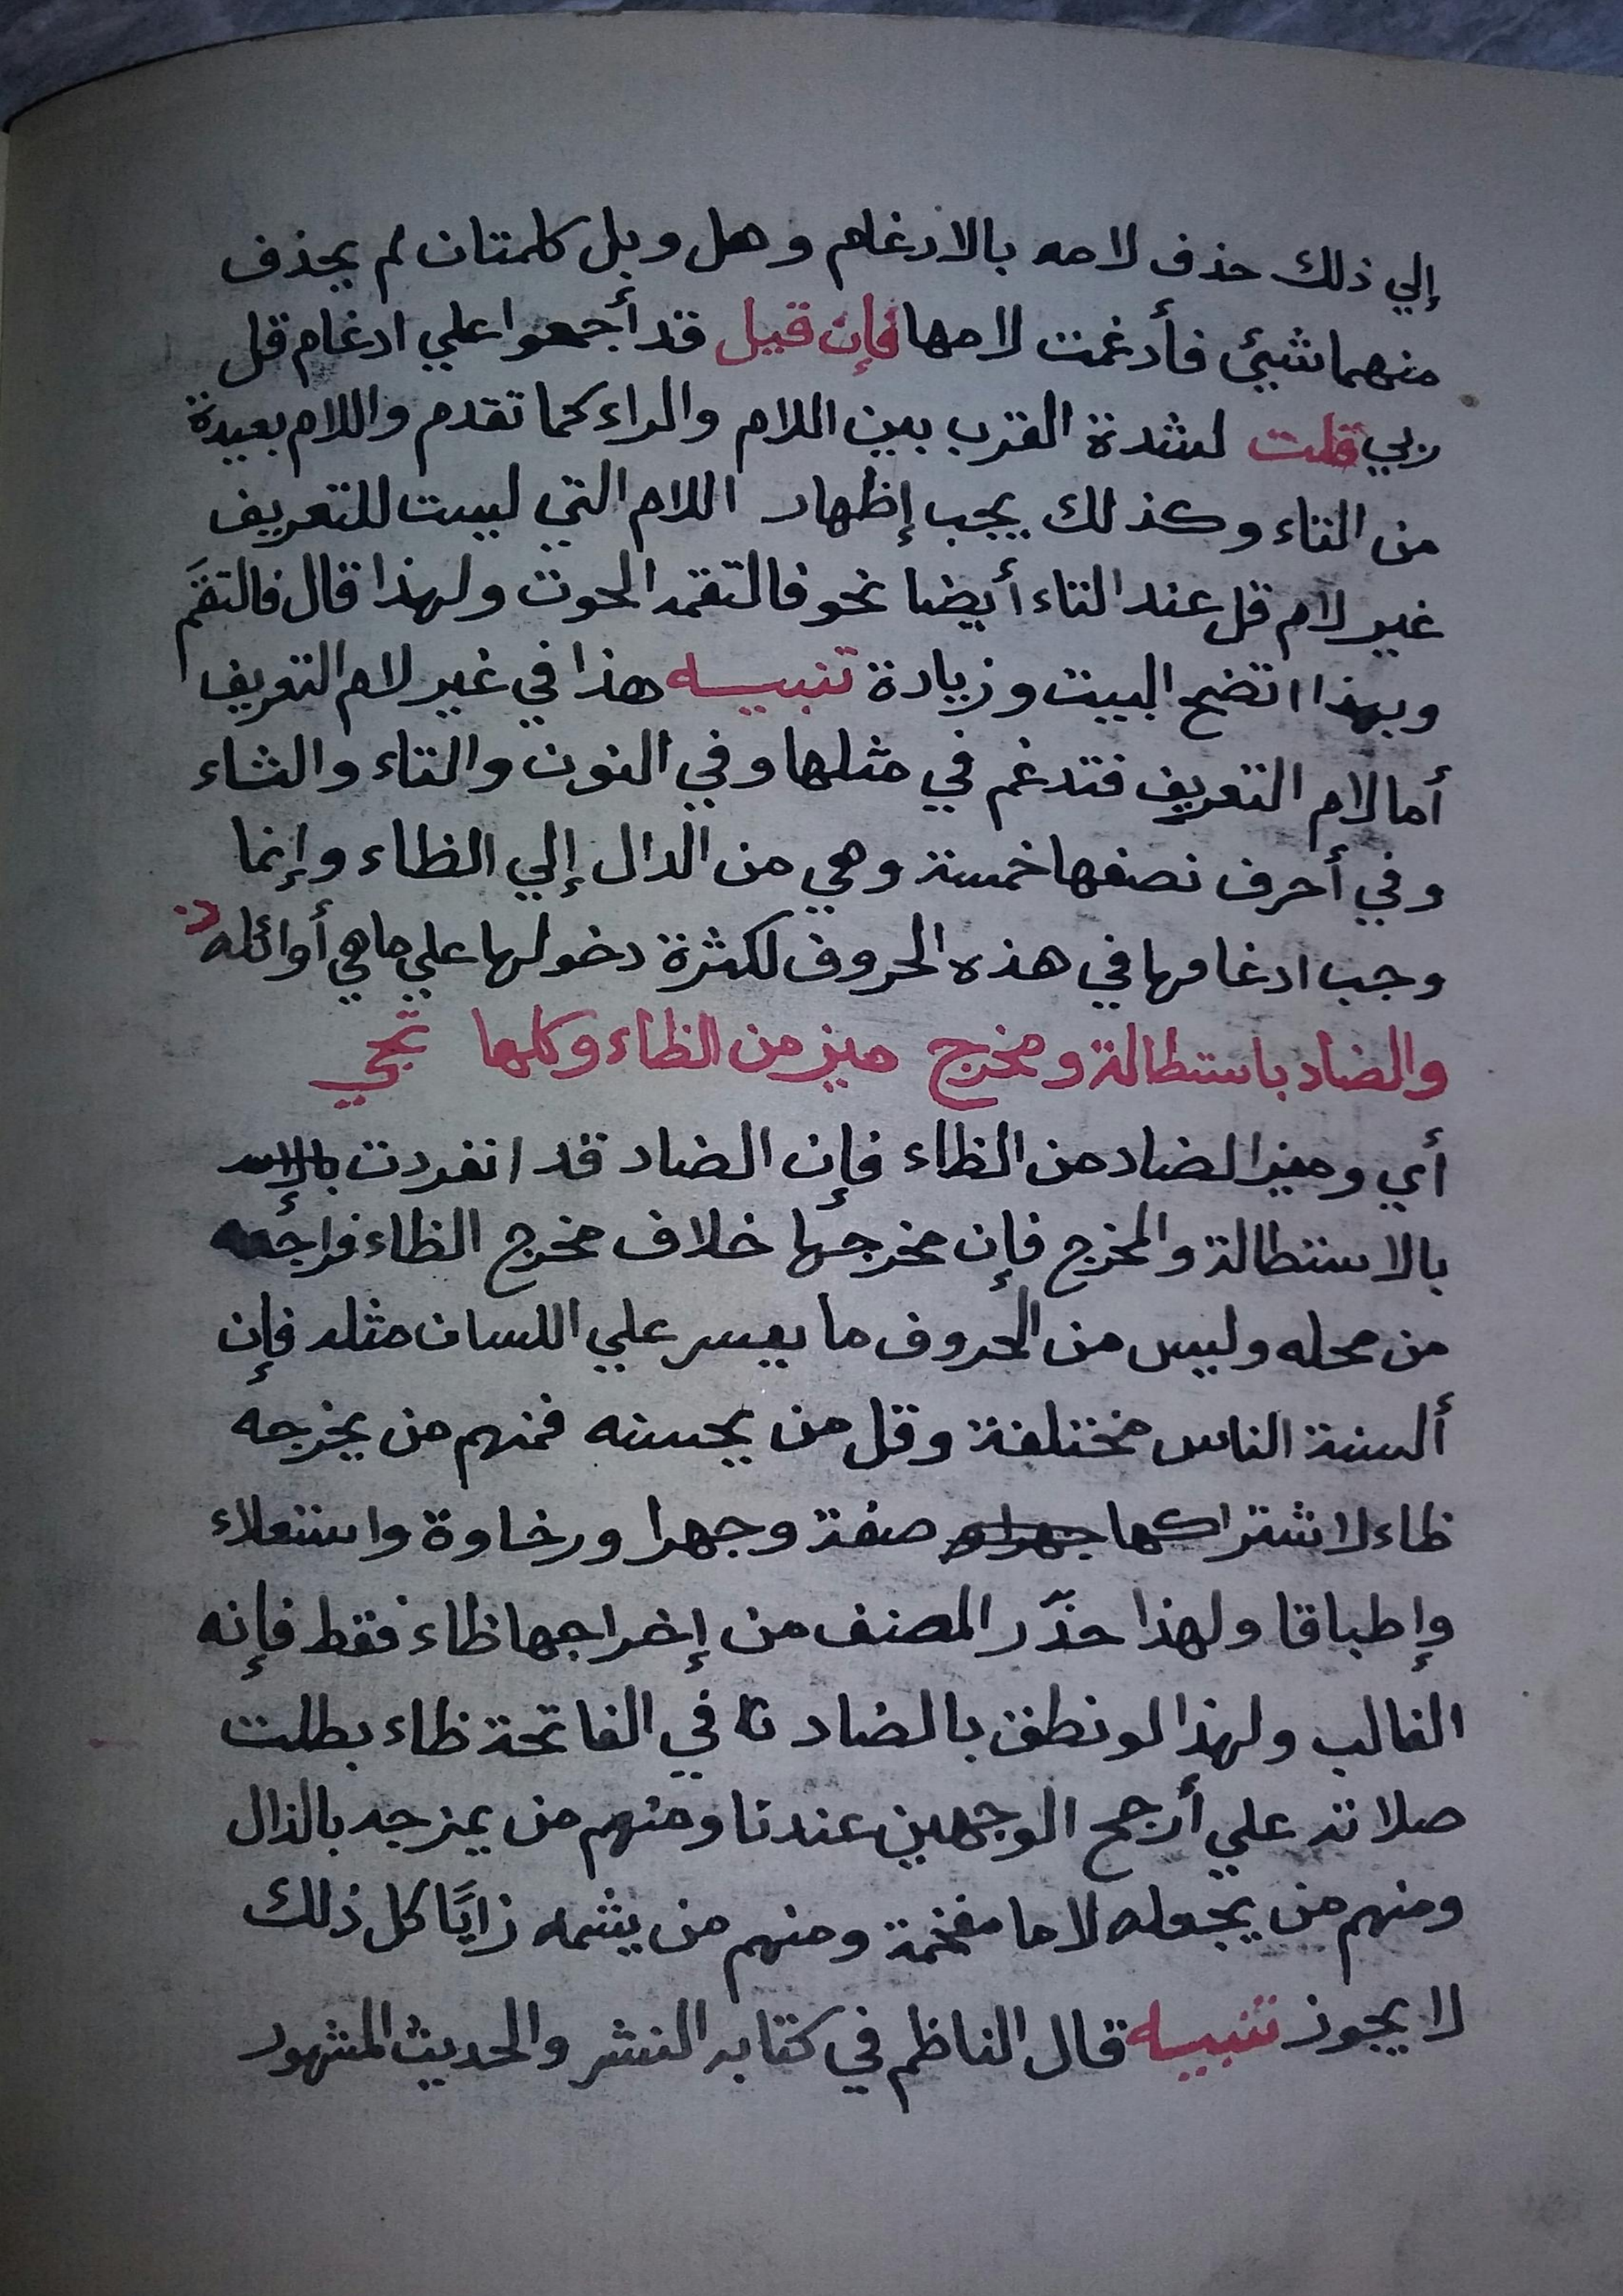 إلي ذلك حذف لامه بالادغام وهل وبل كلمتان لم يحذف
منهما شيئ فأدغمت لامها فإن قيل قد أجمعوا علي ادغام قل
ربي قلت لشدة القرب بين اللام والراء كما تقدم واللام بعيدة
من التاء وكذلك يجب إظهار اللام التي ليست للتعريف
غير لام قل عند التاء أيضا نحو فالتقمه الحوت ولهذا قال فالتقَم
وبهذا اتضح البيت وزيادة تنبيه هذا في غير لام التعريف
أما لام التعريف فتدغم في مثلها وفي النون والتاء والثاء
وفي أحرف نصفها خمسة وهي من الدال إلي الظاء وإنما
وجب ادغامها في هذه الحروف لكثرة دخولها علي ما هي أوائله
والضاد باستطالة ومخرج ميز من الظاء وكلها تجي
أي وميز الضاد من الظاء فإن الضاد قد انفردت بالإس
بالاستطالة والمخرج فإن مخرجها خلاف مخرج الظاء فراجعه
من محله وليس من الحروف ما يعسر علي اللسان مثله فإن
ألسنة الناس مختلفة وقل من يحسنه فمنهم من يخرجه
ظاء لاشتراكها صفة وجهرا ورخاوة واستعلاء
وإطباقا ولهذا حذّر المصنف من إخراجها ظاء فقط فإنه
الغالب ولهذا لو نطق بالضاد في الفاتحة ظاء بطلت
صلاته علي أرجح الوجهين عندنا ومنهم من يمزجه بالذال
ومنهم من يجعله لاما مفخمة ومنهم من يشمه زايًا كل ذلك
لا يجوز تنبيه قال الناظم في كتابه النشر والحديث المشهور